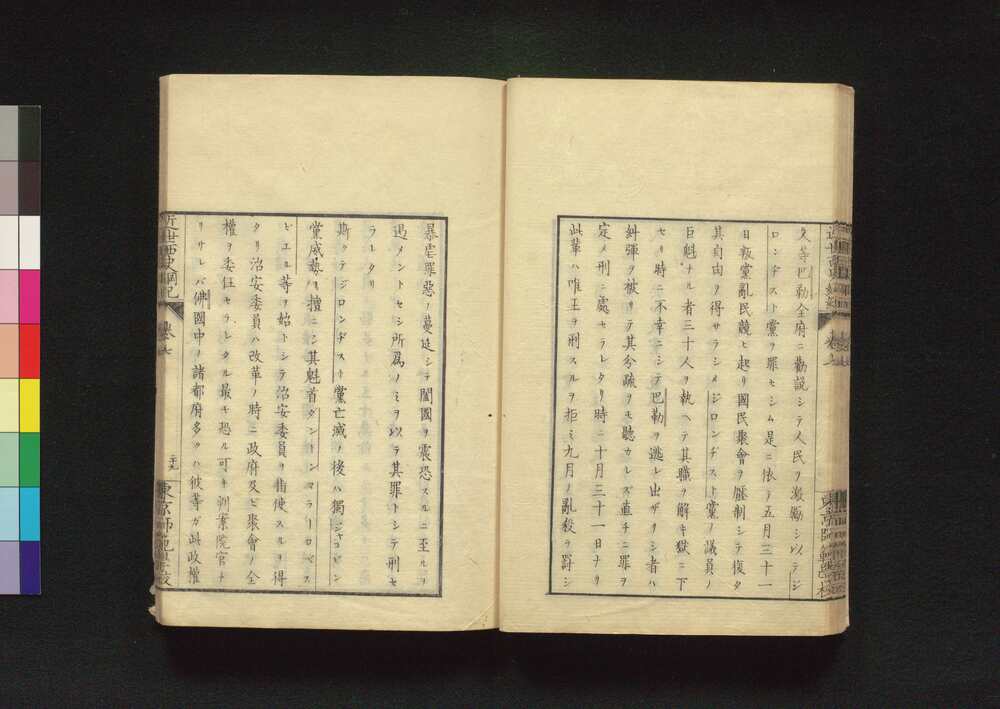 久等巴勒全府ニ勸説シテ人民ヲ激勵シ以テジ
ロンヂスト黨ヲ罪セシム是ニ依テ五月三十一
日叛黨亂民競ヒ起リ國民聚會ヲ壓制シテ復タ
其自由ヲ得サラシメジロンヂスト黨ノ議員ノ
巨魁ナル者三十人ヲ執ヘテ其職ヲ解キ獄ニ下
セリ時ニ不幸ニシテ巴勒ヲ逃レ出ザリシ者ハ
糾彈ヲ被リテ其分疏ヲモ聽カレズ直チニ罪ヲ
定メ刑ニ處セラレタリ時ニ十月三十一日ナリ
此輩ハ唯王ヲ刑スルヲ拒ミ九月ノ亂殺ヲ罸シ
暴虐罪惡ノ蔓延シテ闔國ヲ震恐スルニ至ルヲ
遏メントセシ所爲ノミヲ以テ其罪トシテ刑セ
ラレタリ
斯クテジロンヂスト黨亡滅ノ後ハ獨ジャコビン
黨威勢ヲ擅ニシ其魁首ダントンマラーロベス
ピエル等ヲ始トシテ治安委員ヲ指使スルヲ得
タリ治安委員ハ改革ノ時ニ政府及ビ聚會ノ全
權ヲ委任セラレタル最モ恐ル可キ訊案院官ナ
リサレバ佛國中ノ諸都府多クハ彼等ガ此政權
近世西史綱紀
卷七
二十九
東京師範學校